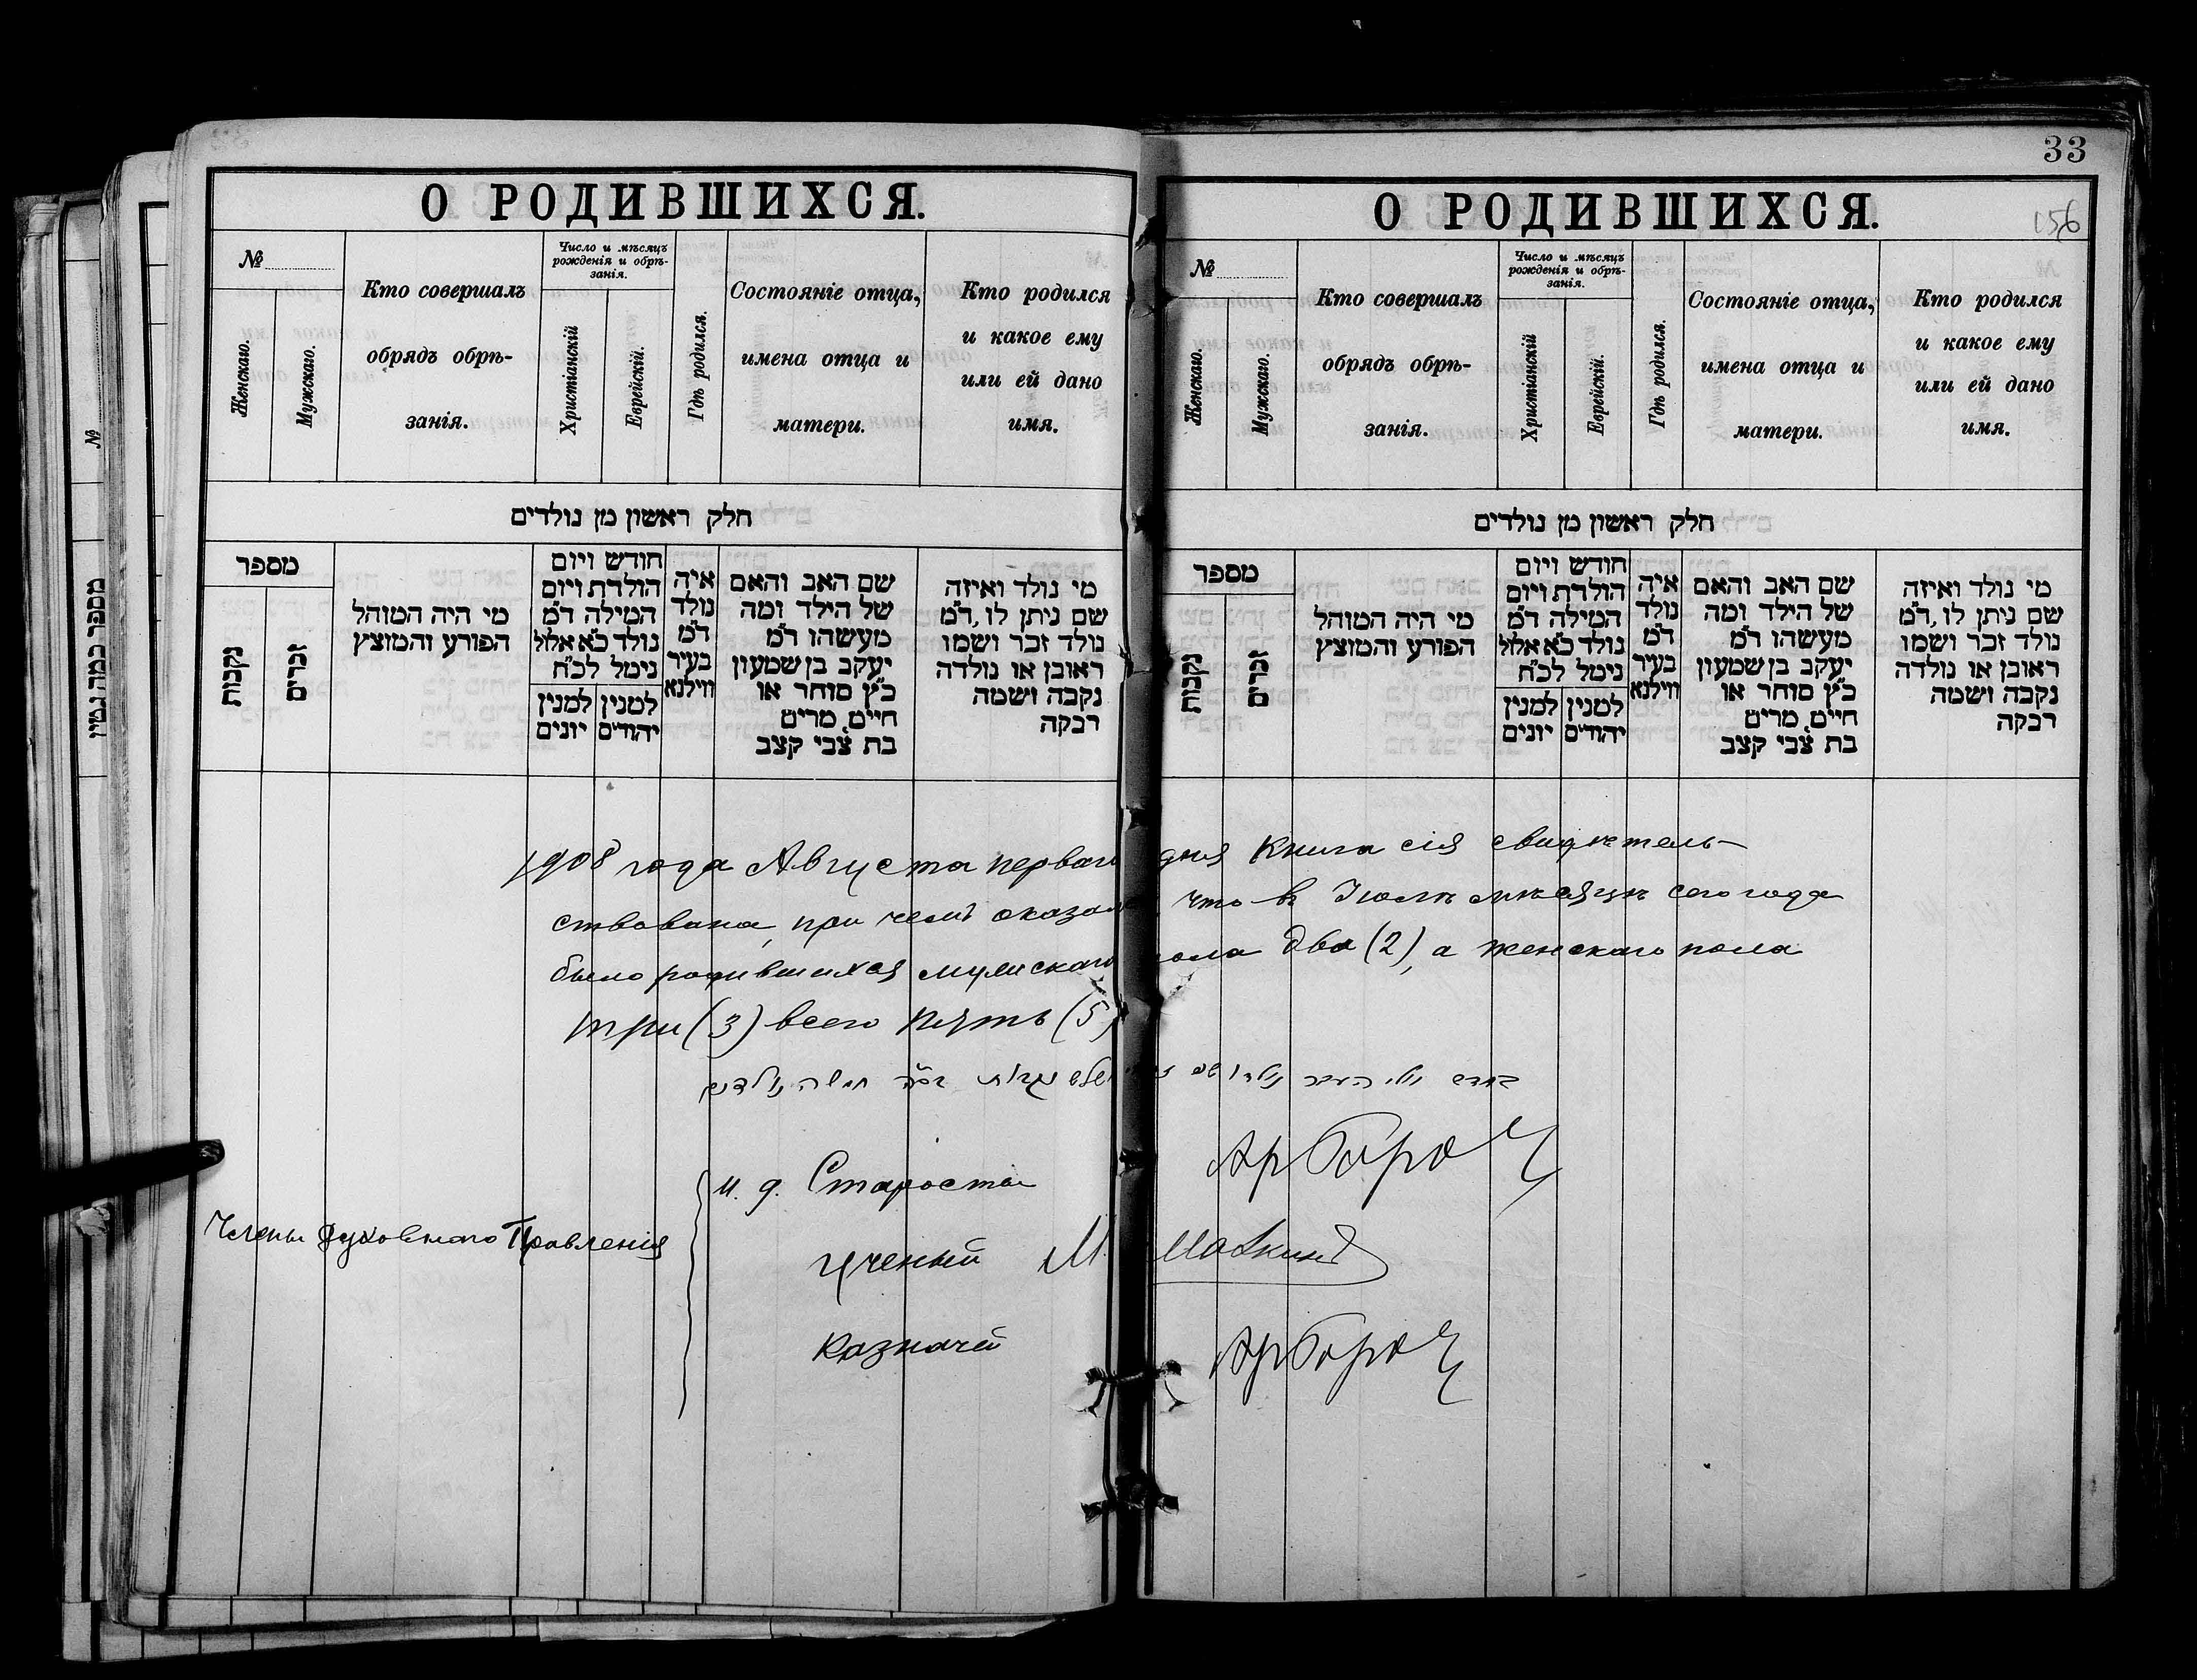 33
156
О РОДИВШИХСЯ.
№
Женскаго.
Мужскаго.
Кто совершалъ
обрядъ обрѣ-
занія.
Число и мѣсяцъ
рожденія и обрѣ-
занія.
Христіанскій
Еврейскій.
Гдѣ родился.
Состояніе отца,
имена отца и
матери.
Кто родился
и какое ему
или ей дано
имя.
חלק ראשון מן נולדים
מספר
נקבות
זכרים
מי היה המוהל
הפורע והמוצץ
חודש ויום
הולדת ויום
המילה ד״מ
נולד כ״א אלול
נימל לכ״ח
למנין
יונים
למנין
יהודים
איה
נולד
ד״מ
בעיר
ווילנא
שם האב והאם
של הילד ומה
מעשהו ד״מ
יעקב בן שמעון
כ״ץ סוחר או
חיים, מרים
בת צבי קצב
מי נולד ואיזה
שם ניתן לו, ד״מ
נולד זכר ושמו
ראובן או נולדה
נקבה ושמה
רבקה
О РОДИВШИХСЯ.
№
Женскаго.
Мужскаго.
Кто совершалъ
обрядъ обрѣ-
занія.
Число и мѣсяцъ
рожденія и обрѣ-
занія.
Христіанскій
Еврейскій.
Гдѣ родился.
Состояніе отца,
имена отца и
матери.
Кто родился
и какое ему
или ей дано
имя.
חלק ראשון מן נולדים
מספר
נקבות
זכרים
מי היה המוהל
הפורע והמוצץ
חודש ויום
הולדת ויום
המילה ד״מ
נולד כ״א אלול
נימל לכ״ח
למנין
יונים
למנין
יהודים
איה
נולד
ד״מ
בעיר
ווילנא
שם האב והאם
של הילד ומה
מעשהו ד״מ
יעקב בן שמעון
כ״ץ סוחר או
חיים, מרים
בת צבי קצב
מי נולד ואיזה
שם ניתן לו, ד״מ
נולד זכר ושמו
ראובן או נולדה
נקבה ושמה
רבקה
1908 года Августа перваго дня Книга сія свидѣтель-
ствована, при чемъ оказалось что въ Іюлѣ мѣсяцѣ сего года
было родившихся мужскаго пола два (2), а женскаго пола
три (3) всего пять (5)
Члены Духовнаго Правленія
И. д. Староста
Ученый М.
Казначей